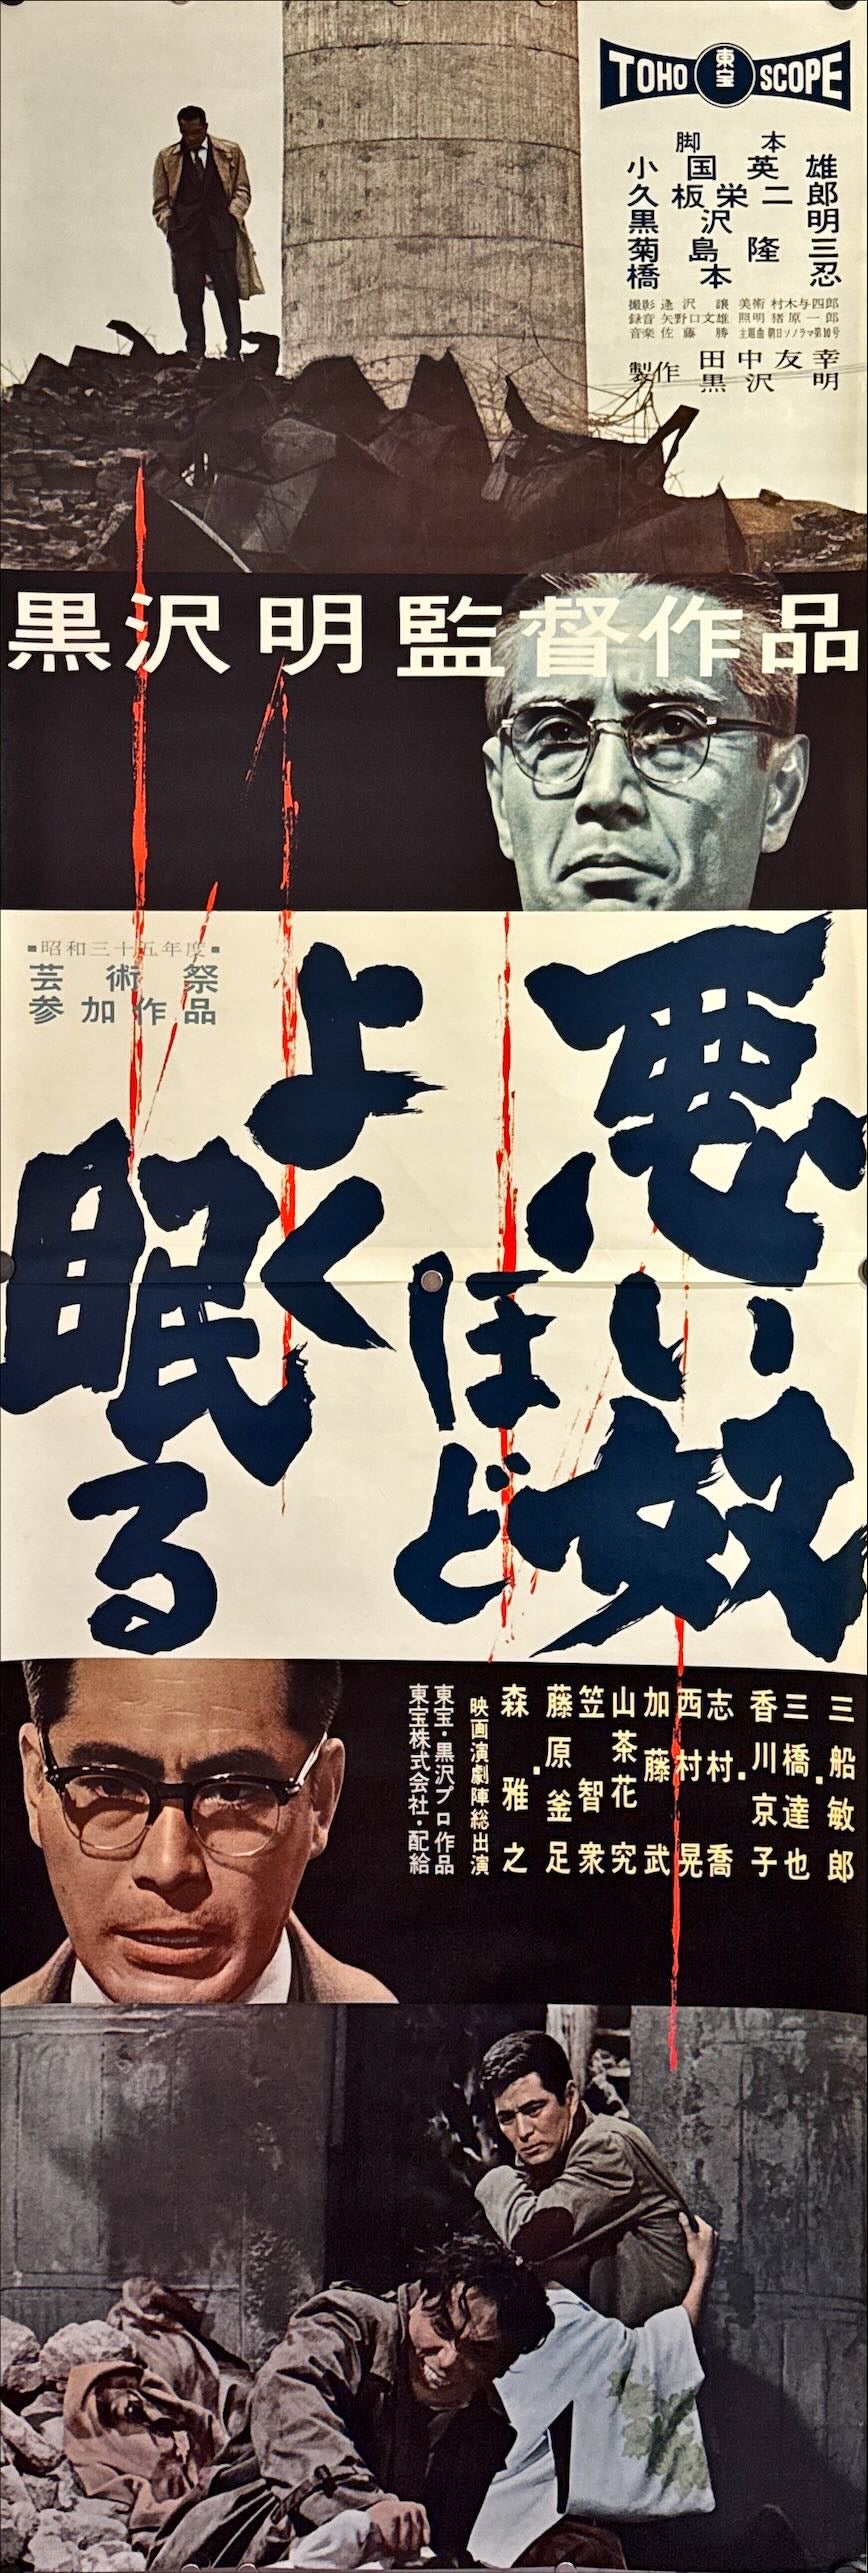 TOHO 東宝 SCOPE
脚本
小国英雄
久板栄二郎
黒沢明
菊島隆三
橋本忍
撮影 逢沢譲 美術 村木与四郎
録音 矢野口文雄 照明 猪原一郎
音楽 佐藤勝 主題曲 朝日ソノラマ第10号
製作 田中友幸
黒沢明
黒沢明監督作品
▪昭和三十五年度▪
芸術祭
参加作品
悪い奴
ほど
よく
眠る
三船敏郎
三橋達也
香川京子
志村喬
西村晃
加藤武
山茶花究
笠智衆
藤原釜足
森雅之
映画演劇陣総出演
東宝・黒沢プロ作品
東宝株式会社・配給